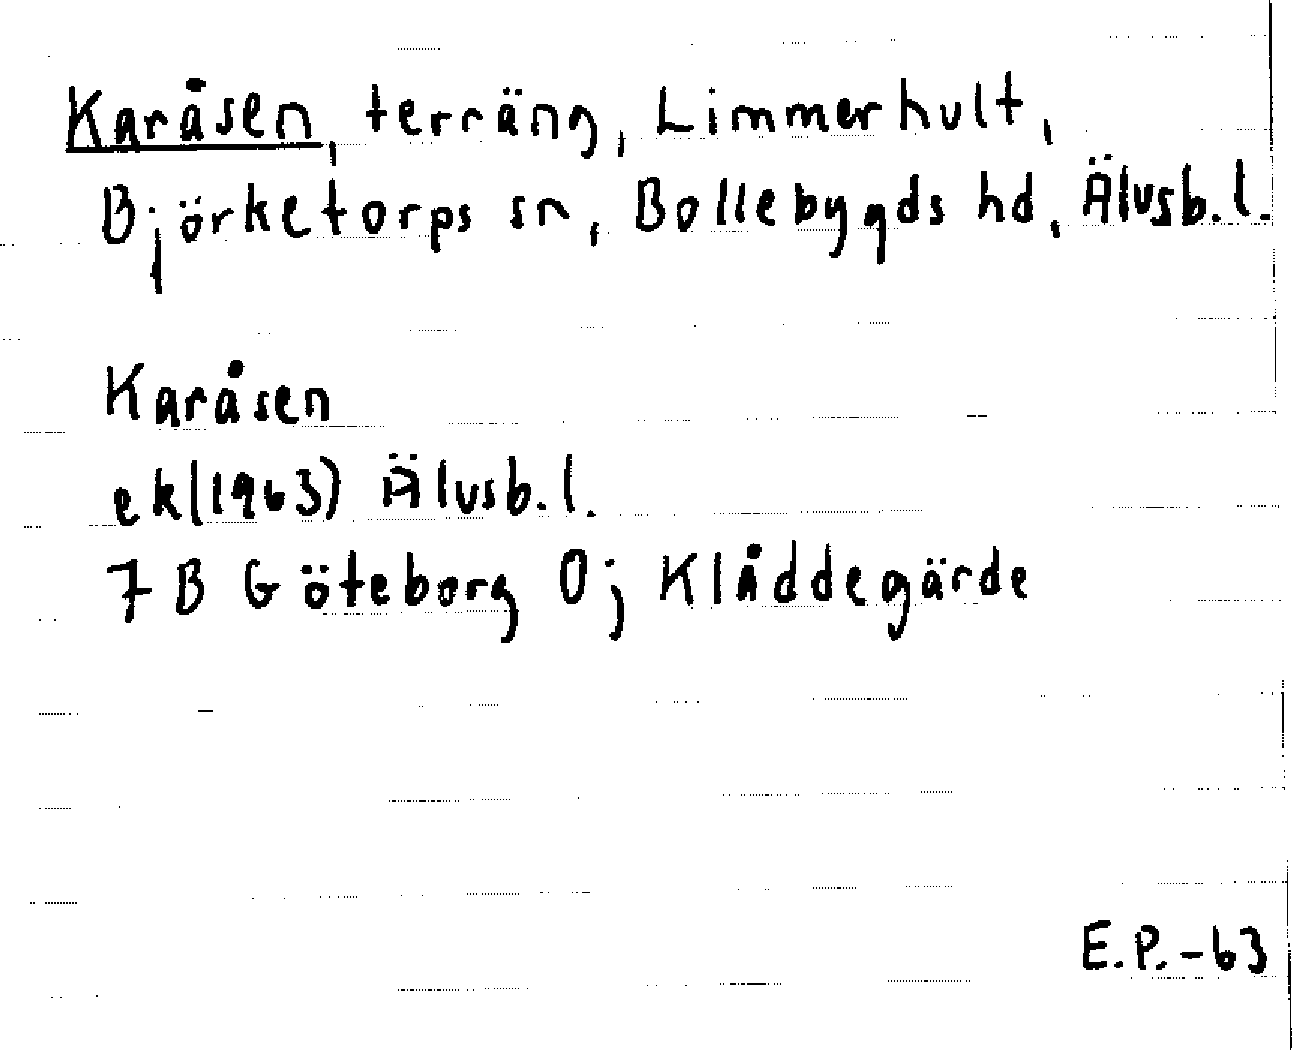 Karåsen, terräng, Limmerhult,
Björketorps sn, Bollebygds hd, Älvsb.l.
Karåsen
ek(1963) Älvsb.l.
7B Göteborg 0j Klåddegärde
E.P.-63